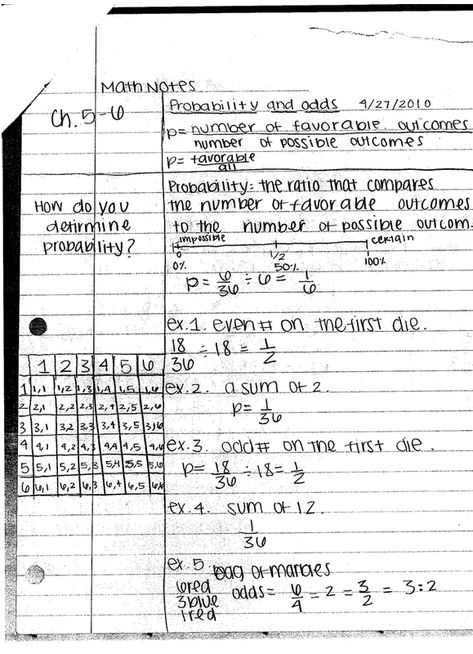 Math Notes
Ch. 5-6
Probability and odds 4/27/2010
p = number of favorable outcomes
number of possible outcomes
p = favorable
all
How do you
detirmine
probability?
Probability: the ratio that compares
the number of favorable outcomes
to the number of possible outcom.
impossible certain
0 1/2
0% 50% 100%
p = 6/36 ÷ 6 = 1/6
ex. 1. even # on the first die.
18/36 ÷ 18 = 1/2
1 2 3 4 5 6
1 1,1 1,2 1,3 1,4 1,5 1,6
2 2,1 2,2 2,3 2,4 2,5 2,6
3 3,1 3,2 3,3 3,4 3,5 3,6
4 4,1 4,2 4,3 4,4 4,5 4,6
5 5,1 5,2 5,3 5,4 5,5 5,6
6 6,1 6,2 6,3 6,4 6,5 6,6
ex. 2. a sum of 2.
p = 1/36
ex. 3. odd # on the first die.
p = 18/36 ÷ 18 = 1/2
ex. 4. sum of 12.
1/36
ex. 5 bag of marbles
6 red
3 blue
1 red
odds = 6/4 ÷ 2 = 3/2 = 3:2